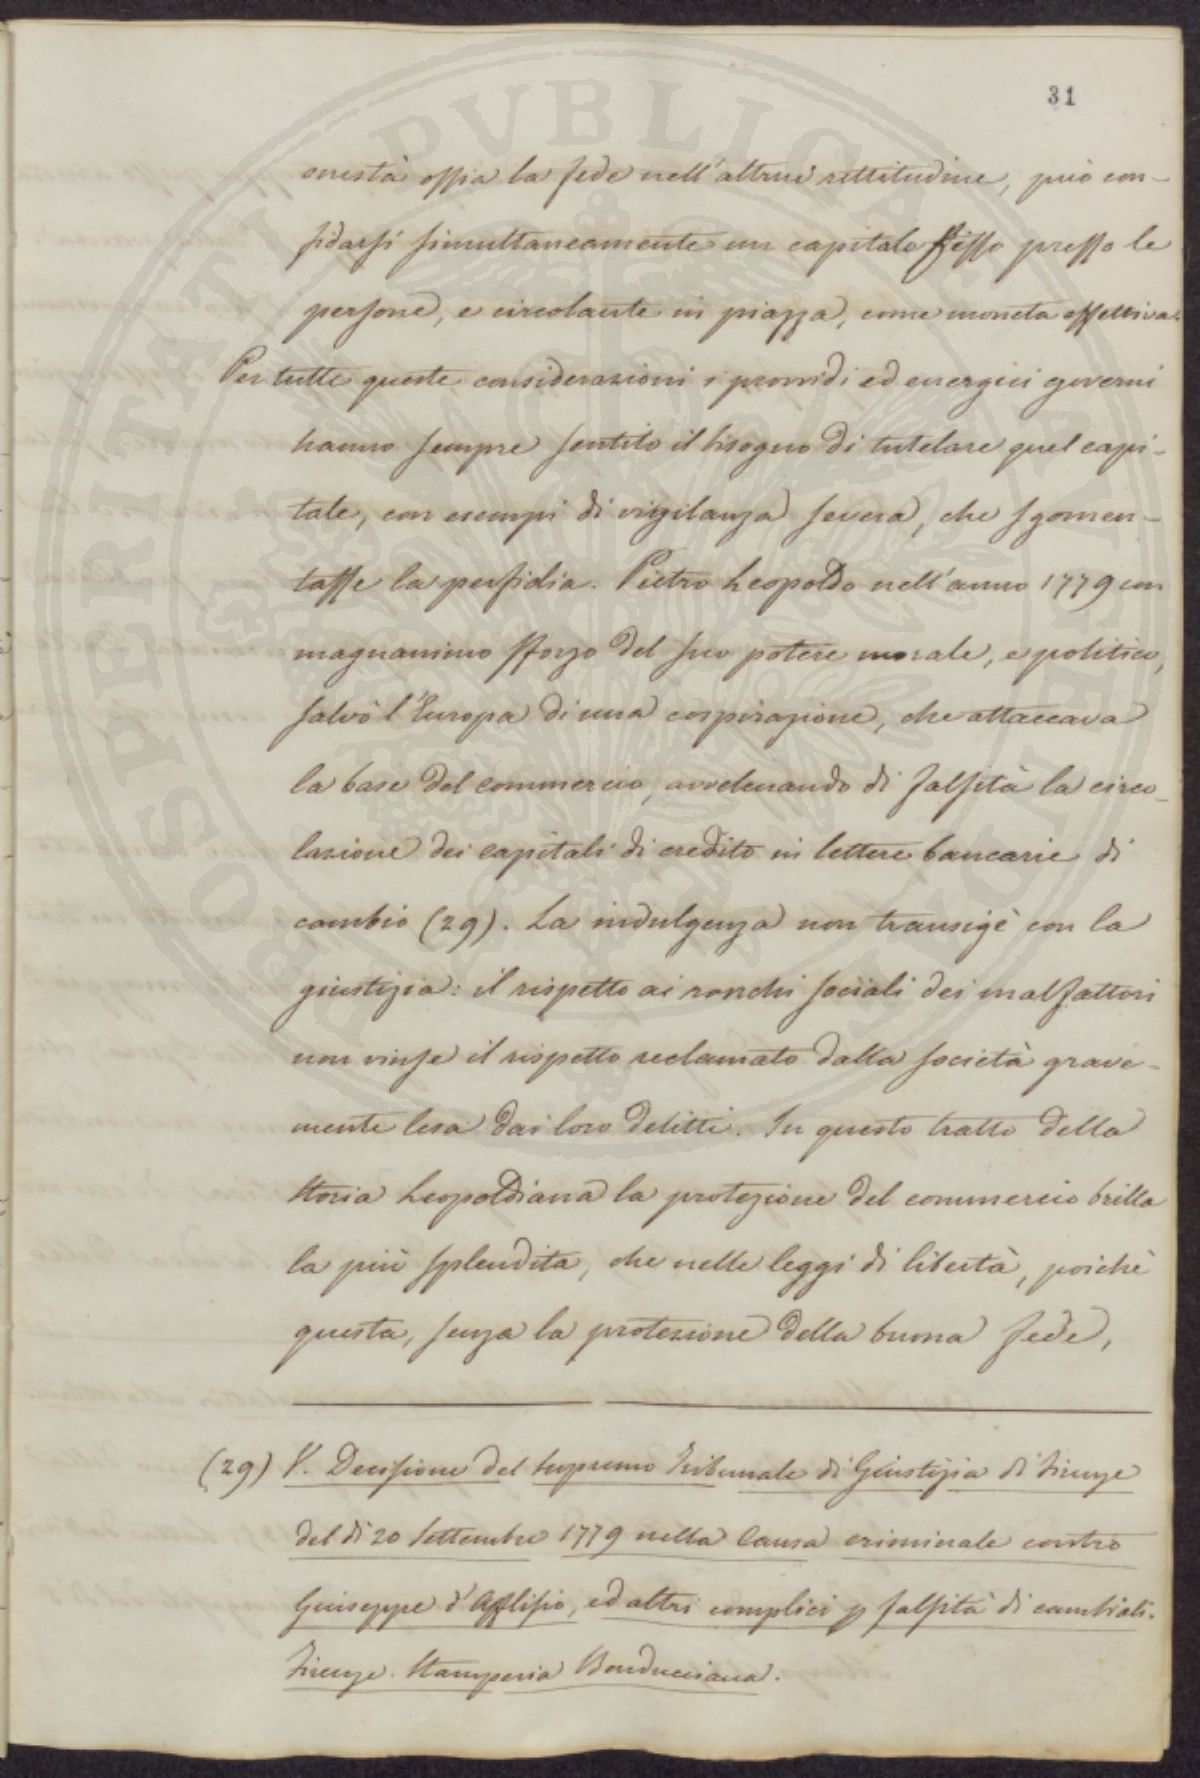 31
onestà ossia la fede nell'altrui rettitudine, può con-
fidarsi simultaneamente un capitale fisso presso le
persone, e circolante in piazza, come moneta effettiva.
Per tutte queste considerazioni i provvidi ed energici governi
hanno sempre sentito il bisogno di tutelare quel capi-
tale, con esempi di vigilanza severa, che sgomen-
tasse la perfidia. Pietro Leopoldo nell'anno 1779 con
magnanimo sforzo del suo potere morale, e politico,
salvò l'Europa di una cospirazione, che attaccava
la base del commercio, avvelenando di falsità la circo-
lazione dei capitali di credito in lettere bancarie di
cambio (29). La indulgenza non transigè con la
giustizia: il rispetto ai ranchi sociali dei malfattori
non vinse il rispetto reclamato dalla società grave-
mente lesa dai loro delitti. In questo tratto della
storia Leopoldiana la protezione del commercio brilla
la più splendita, che nelle leggi di libertà, poichè
questa, senza la protezione della buona fede,
(29) V. Decisione del supremo Tribunale di Giustizia di Firenze
del dì 20 Settembre 1779 nella Causa criminale contro
Giuseppe d'Afflisio, ed altri complici p falsità di cambiali.
Firenze. Stamperia Bonducciana.
PROSPERITATI PVBLICAE